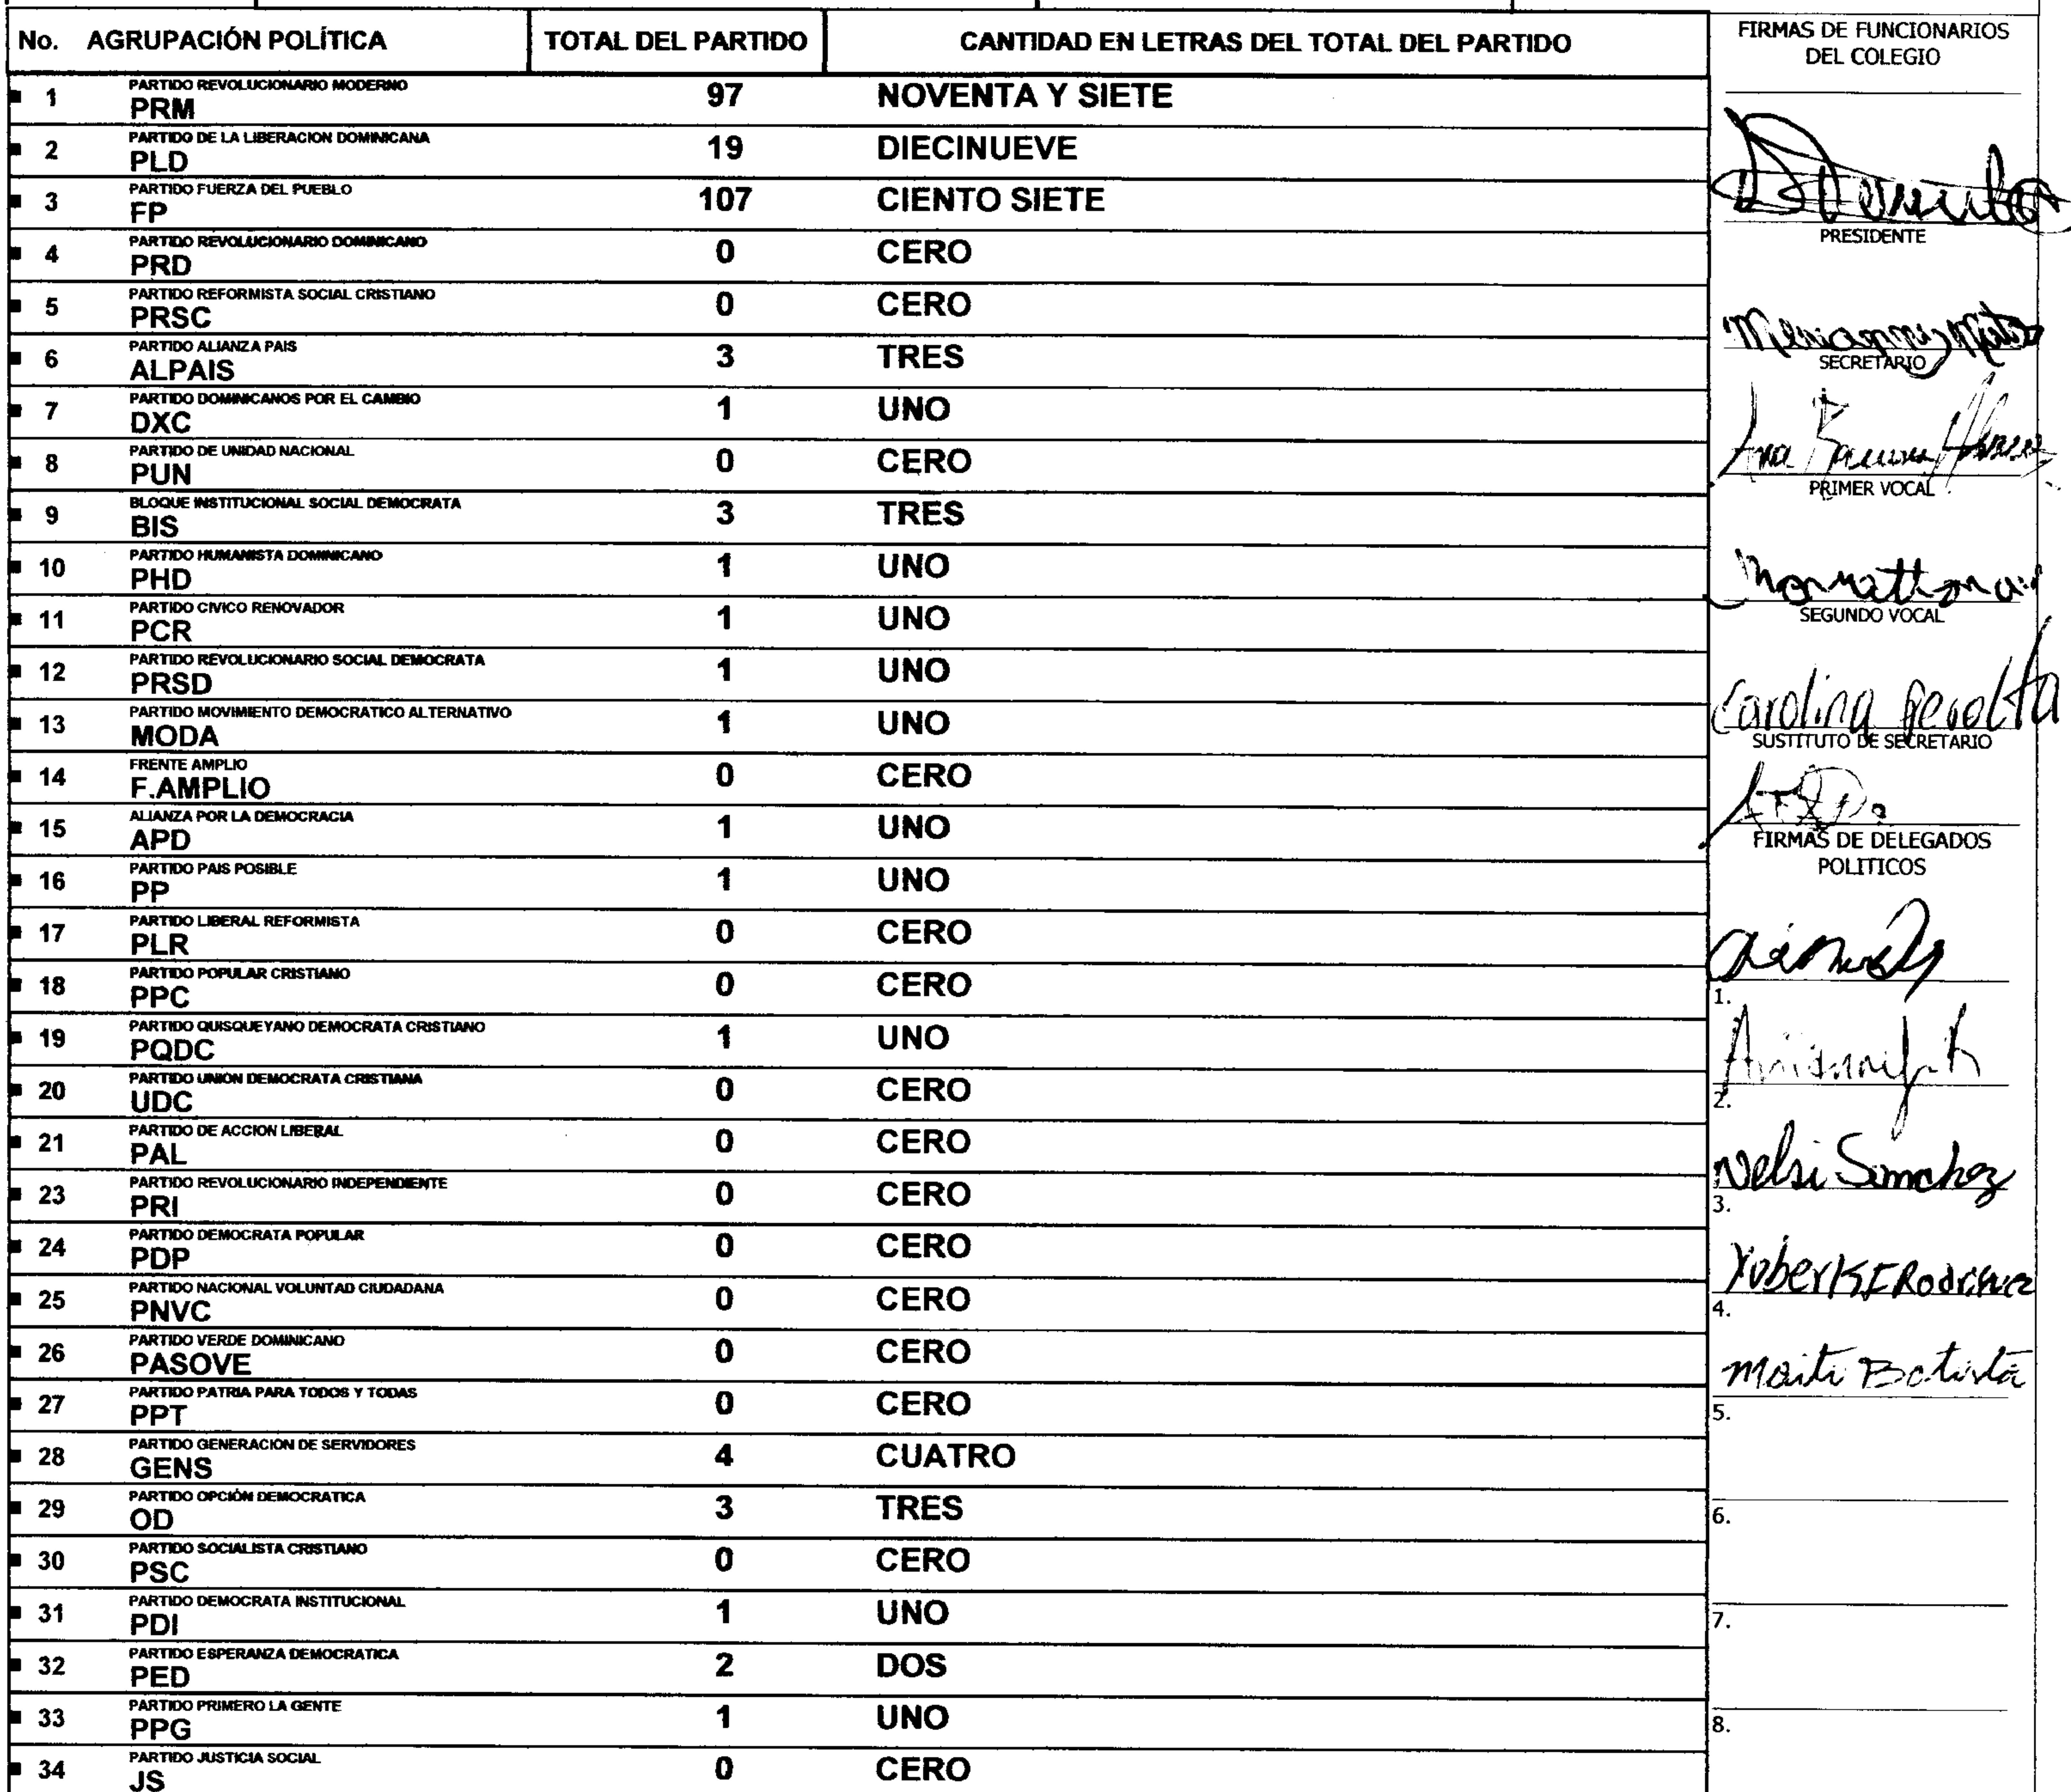 No. AGRUPACIÓN POLÍTICA TOTAL DEL PARTIDO CANTIDAD EN LETRAS DEL TOTAL DEL PARTIDO
PARTIDO REVOLUCIONARIO MODERNO
1 PRM 97 NOVENTA Y SIETE
PARTIDO DE LA LIBERACION DOMINICANA
2 PLD 19 DIECINUEVE
PARTIDO FUERZA DEL PUEBLO
3 FP 107 CIENTO SIETE
PARTIDO REVOLUCIONARIO DOMINICANO
4 PRD 0 CERO
PARTIDO REFORMISTA SOCIAL CRISTIANO
5 PRSC 0 CERO
PARTIDO ALIANZA PAIS
6 ALPAIS 3 TRES
PARTIDO DOMINICANOS POR EL CAMBIO
7 DXC 1 UNO
PARTIDO DE UNIDAD NACIONAL
8 PUN 0 CERO
BLOQUE INSTITUCIONAL SOCIAL DEMOCRATA
9 BIS 3 TRES
PARTIDO HUMANISTA DOMINICANO
10 PHD 1 UNO
PARTIDO CIVICO RENOVADOR
11 PCR 1 UNO
PARTIDO REVOLUCIONARIO SOCIAL DEMOCRATA
12 PRSD 1 UNO
PARTIDO MOVIMIENTO DEMOCRATICO ALTERNATIVO
13 MODA 1 UNO
FRENTE AMPLIO
14 F.AMPLIO 0 CERO
ALIANZA POR LA DEMOCRACIA
15 APD 1 UNO
PARTIDO PAIS POSIBLE
16 PP 1 UNO
PARTIDO LIBERAL REFORMISTA
17 PLR 0 CERO
PARTIDO POPULAR CRISTIANO
18 PPC 0 CERO
PARTIDO QUISQUEYANO DEMOCRATA CRISTIANO
19 PQDC 1 UNO
PARTIDO UNION DEMOCRATA CRISTIANA
20 UDC 0 CERO
PARTIDO DE ACCION LIBERAL
21 PAL 0 CERO
PARTIDO REVOLUCIONARIO INDEPENDIENTE
23 PRI 0 CERO
PARTIDO DEMOCRATA POPULAR
24 PDP 0 CERO
PARTIDO NACIONAL VOLUNTAD CIUDADANA
25 PNVC 0 CERO
PARTIDO VERDE DOMINICANO
26 PASOVE 0 CERO
PARTIDO PATRIA PARA TODOS Y TODAS
27 PPT 0 CERO
PARTIDO GENERACION DE SERVIDORES
28 GENS 4 CUATRO
PARTIDO OPCIÓN DEMOCRATICA
29 OD 3 TRES
PARTIDO SOCIALISTA CRISTIANO
30 PSC 0 CERO
PARTIDO DEMOCRATA INSTITUCIONAL
31 PDI 1 UNO
PARTIDO ESPERANZA DEMOCRATICA
32 PED 2 DOS
PARTIDO PRIMERO LA GENTE
33 PPG 1 UNO
PARTIDO JUSTICIA SOCIAL
34 JS 0 CERO
FIRMAS DE FUNCIONARIOS
DEL COLEGIO
PRESIDENTE
SECRETARIO
PRIMER VOCAL
SEGUNDO VOCAL
Carolina
SUSTITUTO DE SECRETARIO
FIRMAS DE DELEGADOS
POLITICOS
1.
2.
Nelsi Sanchez
3.
4.
Batista
5.
6.
7.
8.